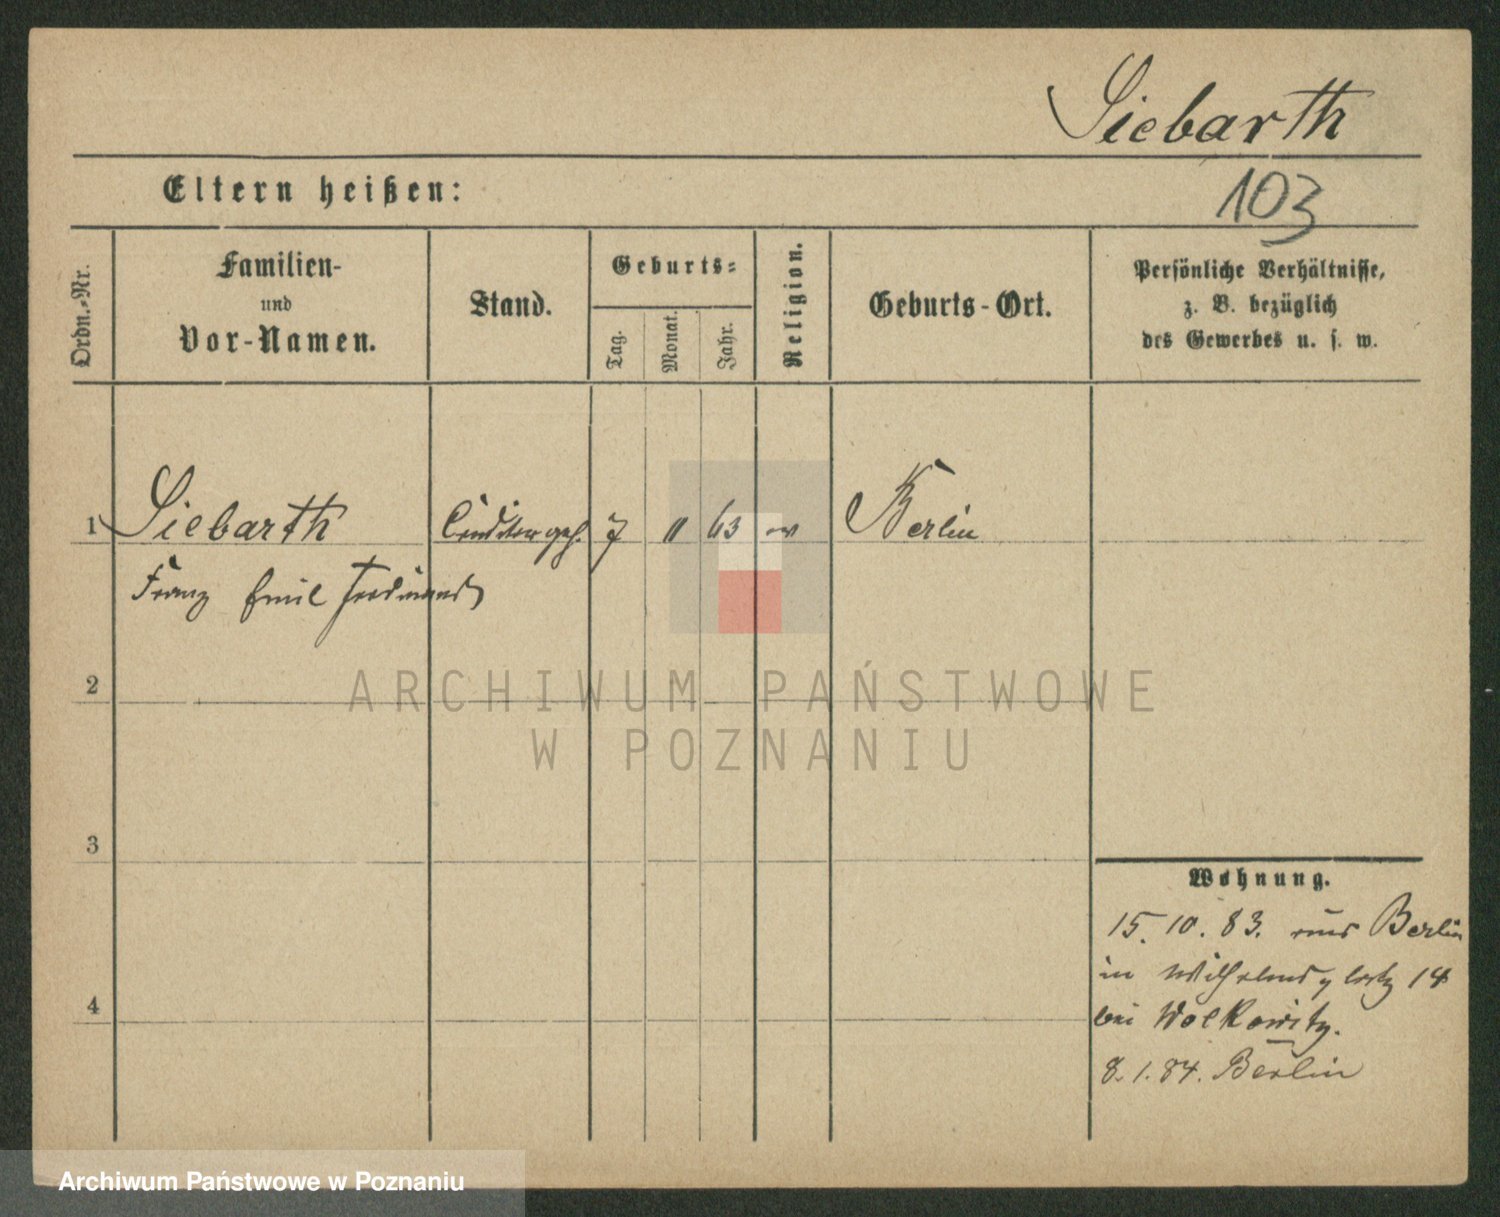 Siebarth
103
Eltern heißen:
Ordn.-Nr.
Familien-
und
Vor-Namen.
Stand.
Geburts-
Tag.
Monat.
Jahr.
Religion.
Geburts-Ort.
Persönliche Verhältnisse,
z. B. bezüglich
des Gewerbes u. s. w.
1 Siebarth Conditorgeh. 7 11 63 ev Berlin
Franz Emil Ferdinand
2
3
4
ARCHIWUM PAŃSTWOWE
W POZNANIU
Wohnung.
15. 10. 83. aus Berlin
in Wilhelmsplatz 14
bei Wolkowitz.
8. 1. 84. Berlin
Archiwum Państwowe w Poznaniu